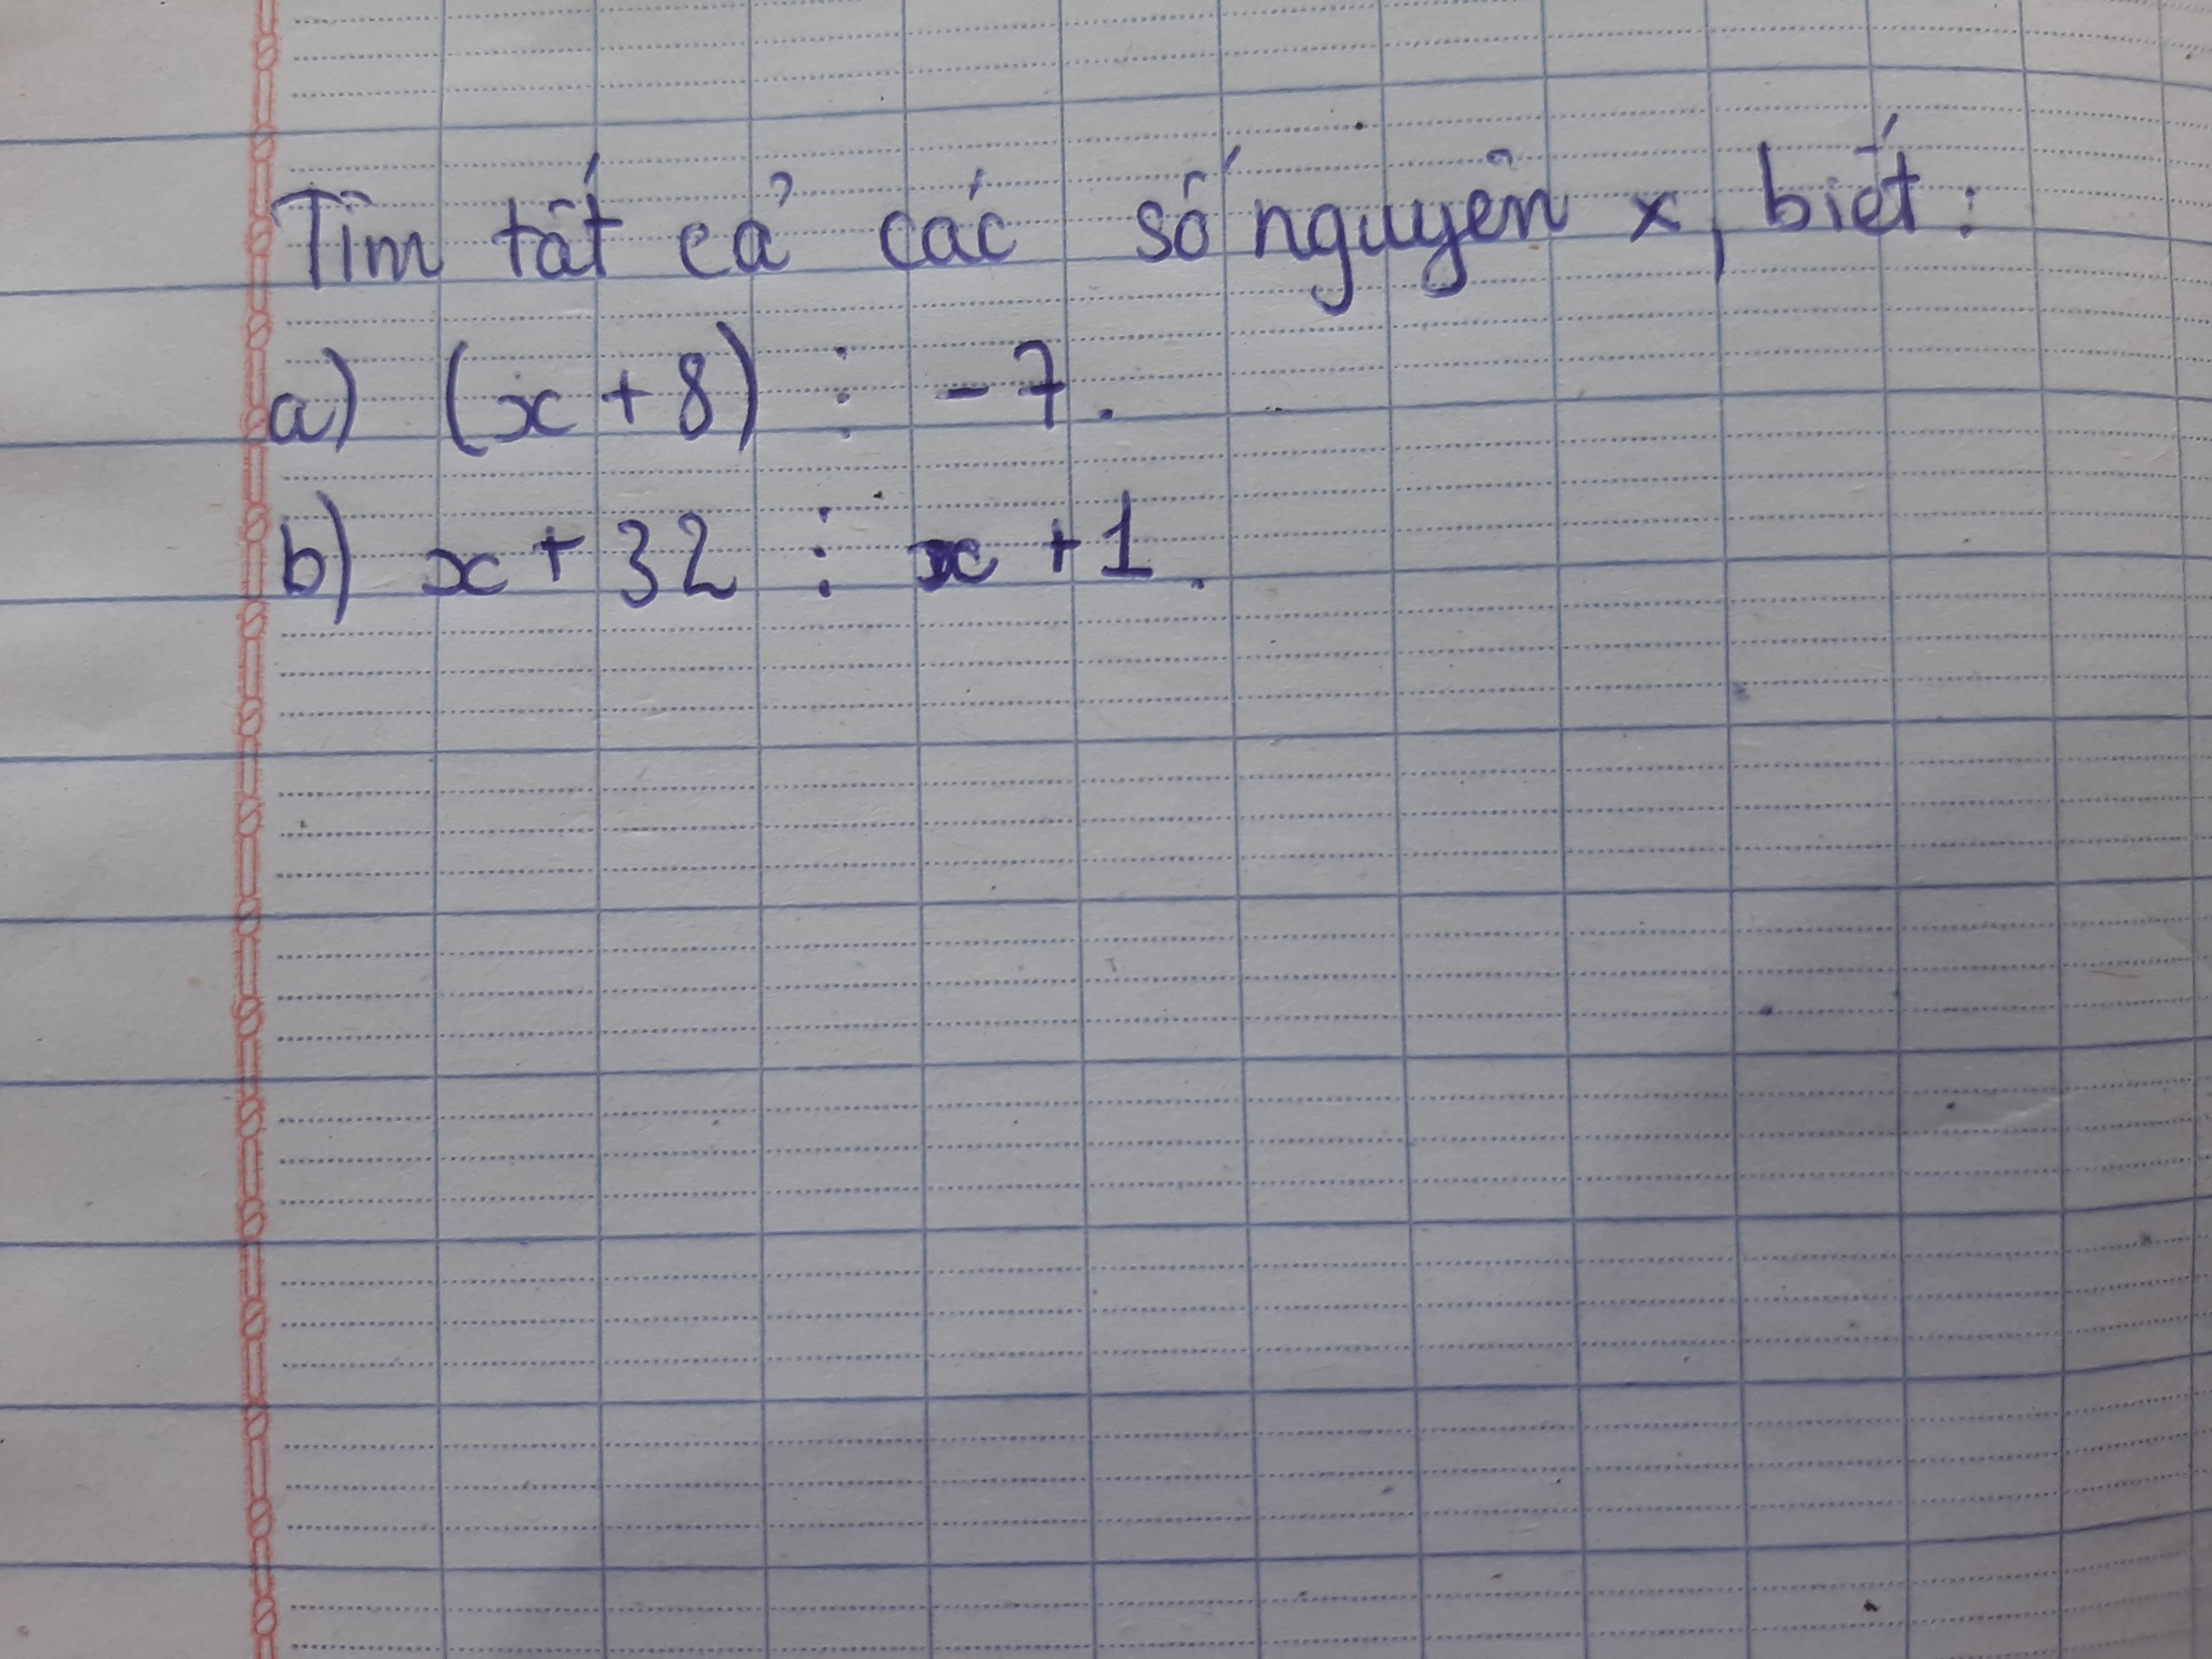 Tìm tất cả các số nguyên x, biết:
a) (x + 8) ⋮ -7.
b) x + 32 ⋮ x + 1.